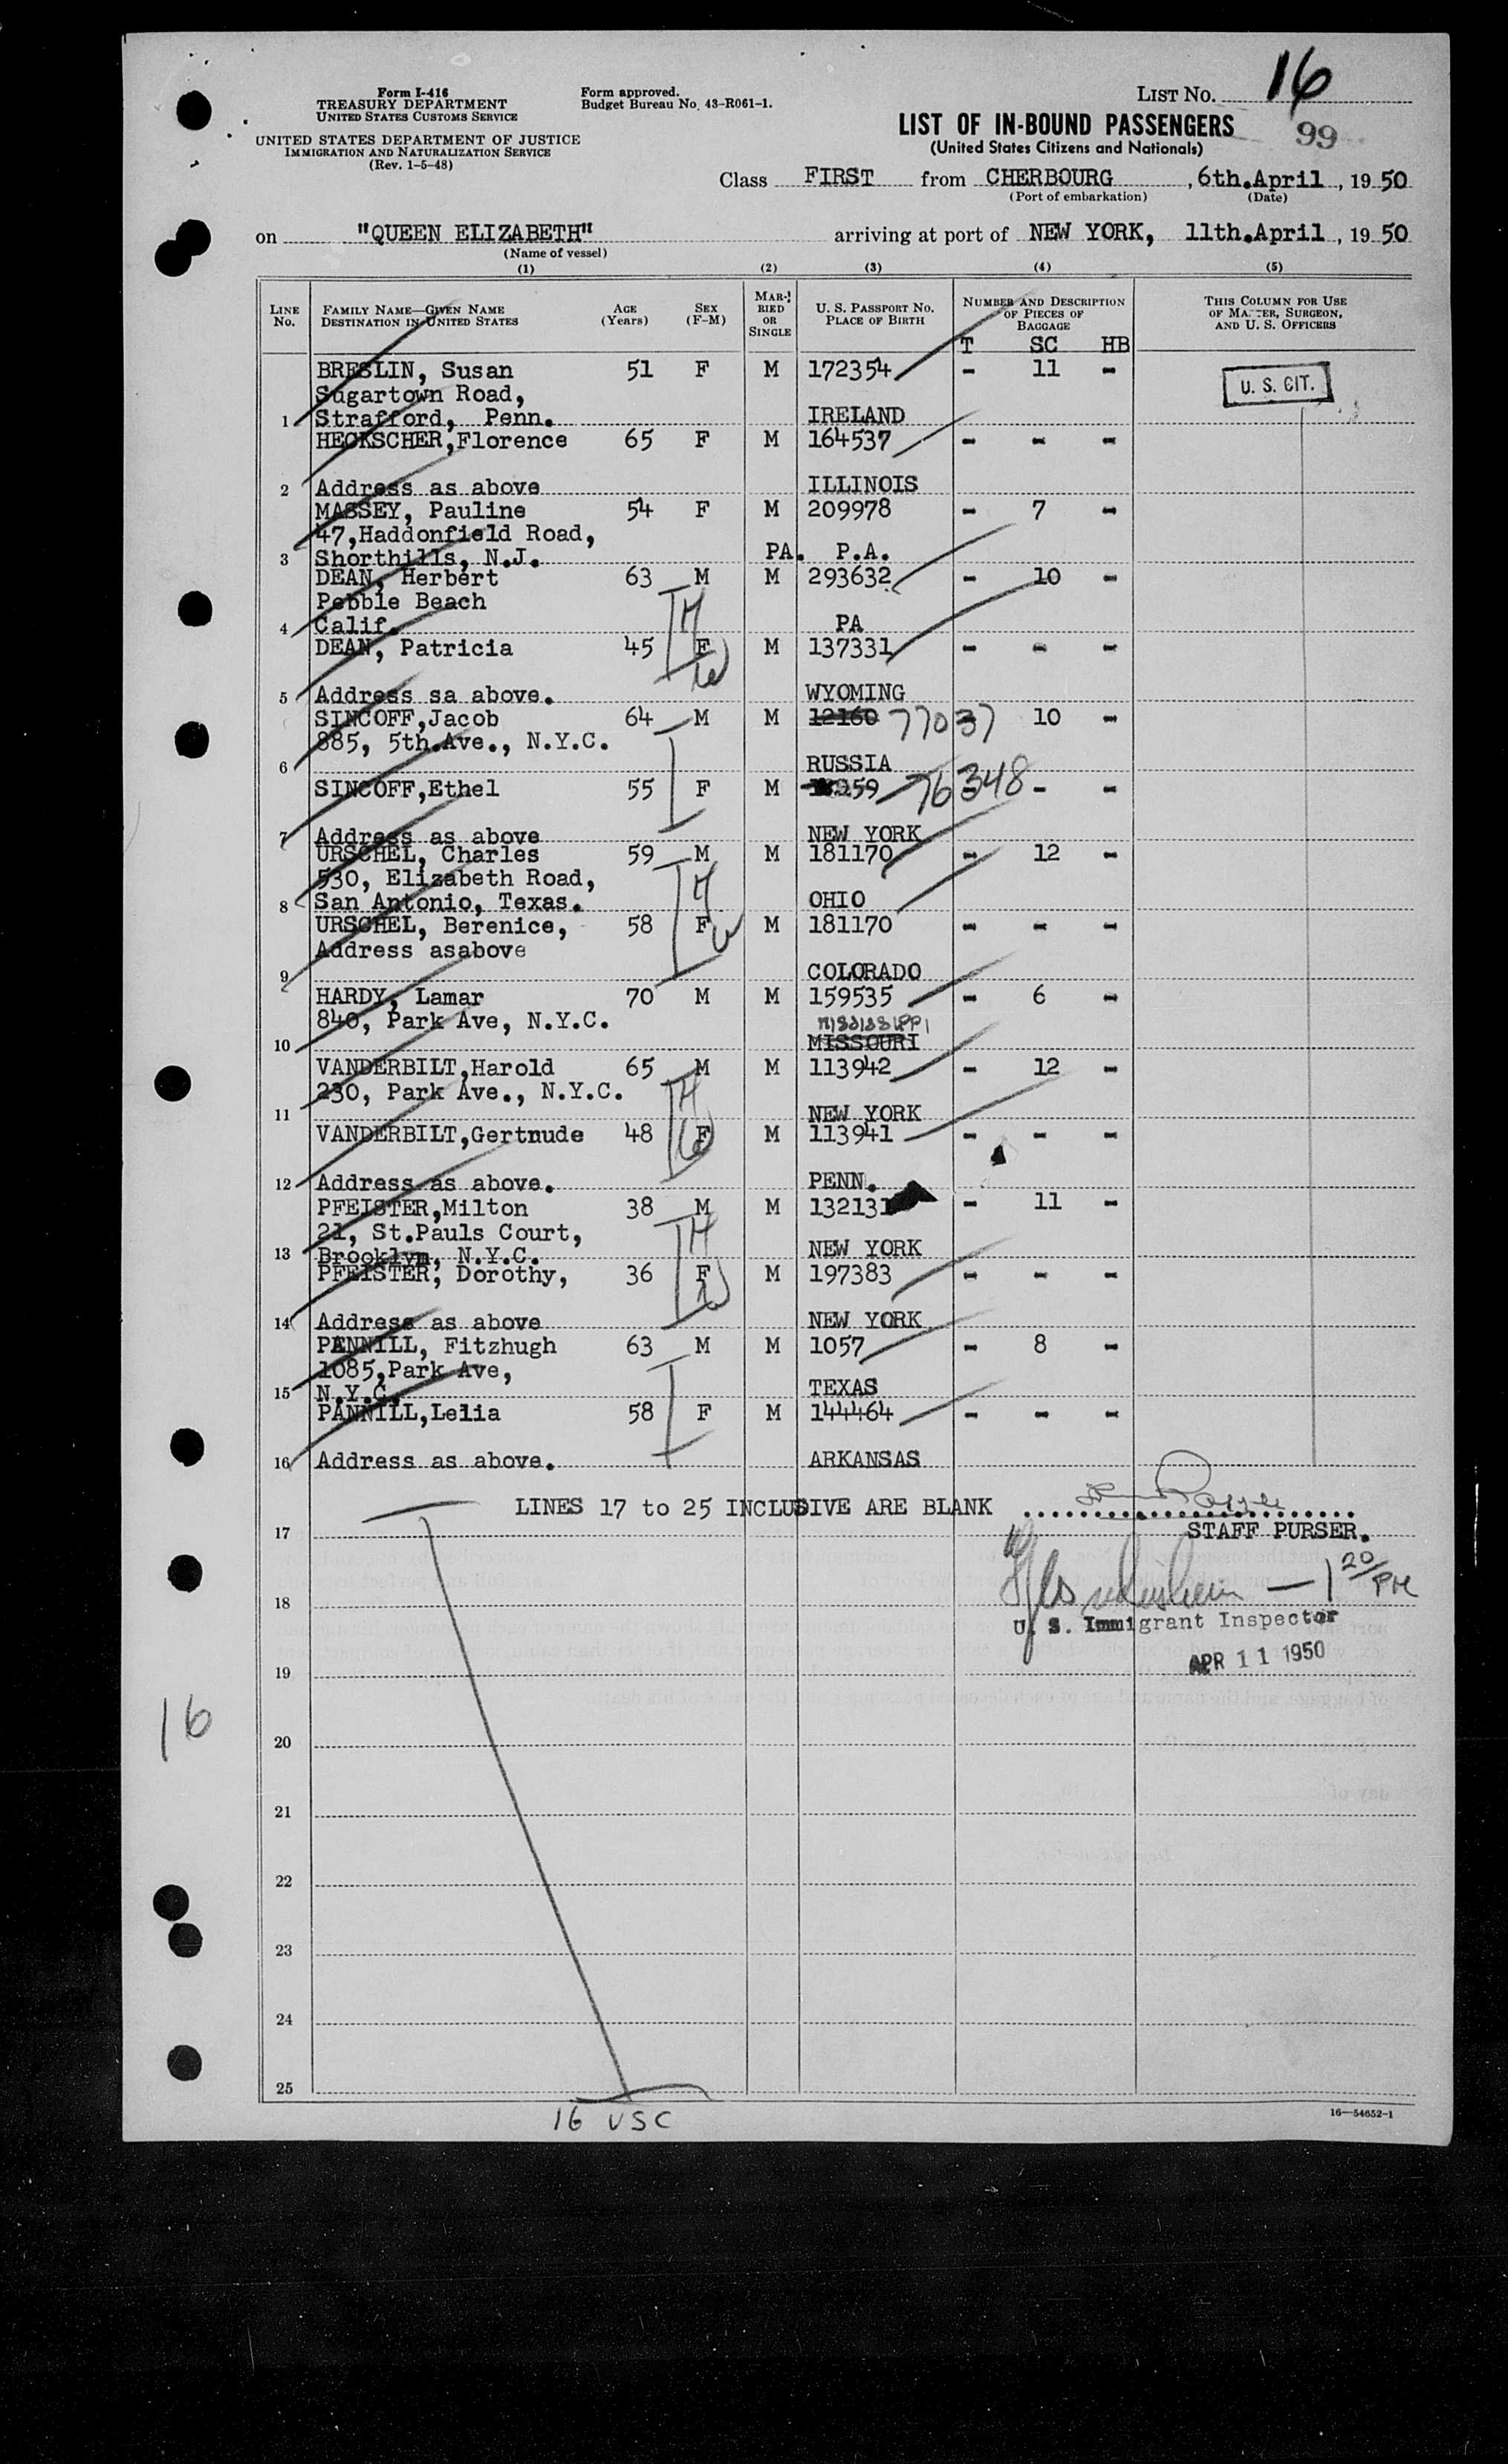 Form I-416
TREASURY DEPARTMENT
UNITED STATES CUSTOMS SERVICE
UNITED STATES DEPARTMENT OF JUSTICE
IMMIGRATION AND NATURALIZATION SERVICE
(Rev. 1-5-48)
Form approved.
Budget Bureau No. 43-R061-1.
LIST NO. 16
LIST OF IN-BOUND PASSENGERS
99
(United States Citizens and Nationals)
Class FIRST from CHERBOURG, 6th.April, 1950
(Port of embarkation) (Date)
on "QUEEN ELIZABETH" arriving at port of NEW YORK, 11th.April, 1950
(Name of vessel)
(1) (2) (3) (4) (5)
LINE No.
FAMILY NAME—GIVEN NAME
DESTINATION IN UNITED STATES
AGE (Years)
SEX (F-M)
MARRIED OR SINGLE
U. S. PASSPORT No.
PLACE OF BIRTH
NUMBER AND DESCRIPTION OF PIECES OF BAGGAGE
THIS COLUMN FOR USE OF MASTER, SURGEON, AND U. S. OFFICERS
T SC HB
BRESLIN, Susan 51 F M 172354 - 11 -
U. S. CIT.
Sugartown Road,
1 Strafford, Penn. IRELAND
HECKSCHER,Florence 65 F M 164537 - - -
2 Address as above ILLINOIS
MASSEY, Pauline 54 F M 209978 - 7 -
47,Haddonfield Road,
3 Shorthills, N.J. PA. P.A.
DEAN, Herbert 63 M M 293632 - 10 -
Pebble Beach H
4 Calif. PA
DEAN, Patricia 45 F M 137331 - - -
W
5 Address sa above. WYOMING
SINCOFF,Jacob 64 M M 12160 77037 - 10 -
885, 5th.Ave., N.Y.C.
6 RUSSIA
SINCOFF,Ethel 55 F M 76348 - - -
7 Address as above NEW YORK
URSCHEL, Charles 59 M M 181170 - 12 -
530, Elizabeth Road, H
8 San Antonio, Texas. OHIO
URSCHEL, Berenice, 58 F M 181170 - - -
Address asabove W
9 COLORADO
HARDY, Lamar 70 M M 159535 - 6 -
840, Park Ave, N.Y.C. MISSISSIPPI
10 MISSOURI
VANDERBILT,Harold 65 M M 113942 - 12 -
230, Park Ave., N.Y.C. H
11 NEW YORK
VANDERBILT,Gertnude 48 F M 113941 - - -
W
12 Address as above. PENN.
PFEISTER,Milton 38 M M 132131 - 11 -
21, St.Pauls Court, H
13 Brooklyn, N.Y.C. NEW YORK
PFEISTER, Dorothy, 36 F M 197383 - - -
W
14 Address as above NEW YORK
PANNILL, Fitzhugh 63 M M 1057 - 8 -
1085,Park Ave,
15 N.Y.C. TEXAS
PANNILL,Lelia 58 F M 144464 - - -
16 Address as above. ARKANSAS
LINES 17 to 25 INCLUSIVE ARE BLANK
17 STAFF PURSER.
1 20/PM
18
U. S. Immigrant Inspector
APR 11 1950
19
16
20
21
22
23
24
25
16 USC
16—54652-1